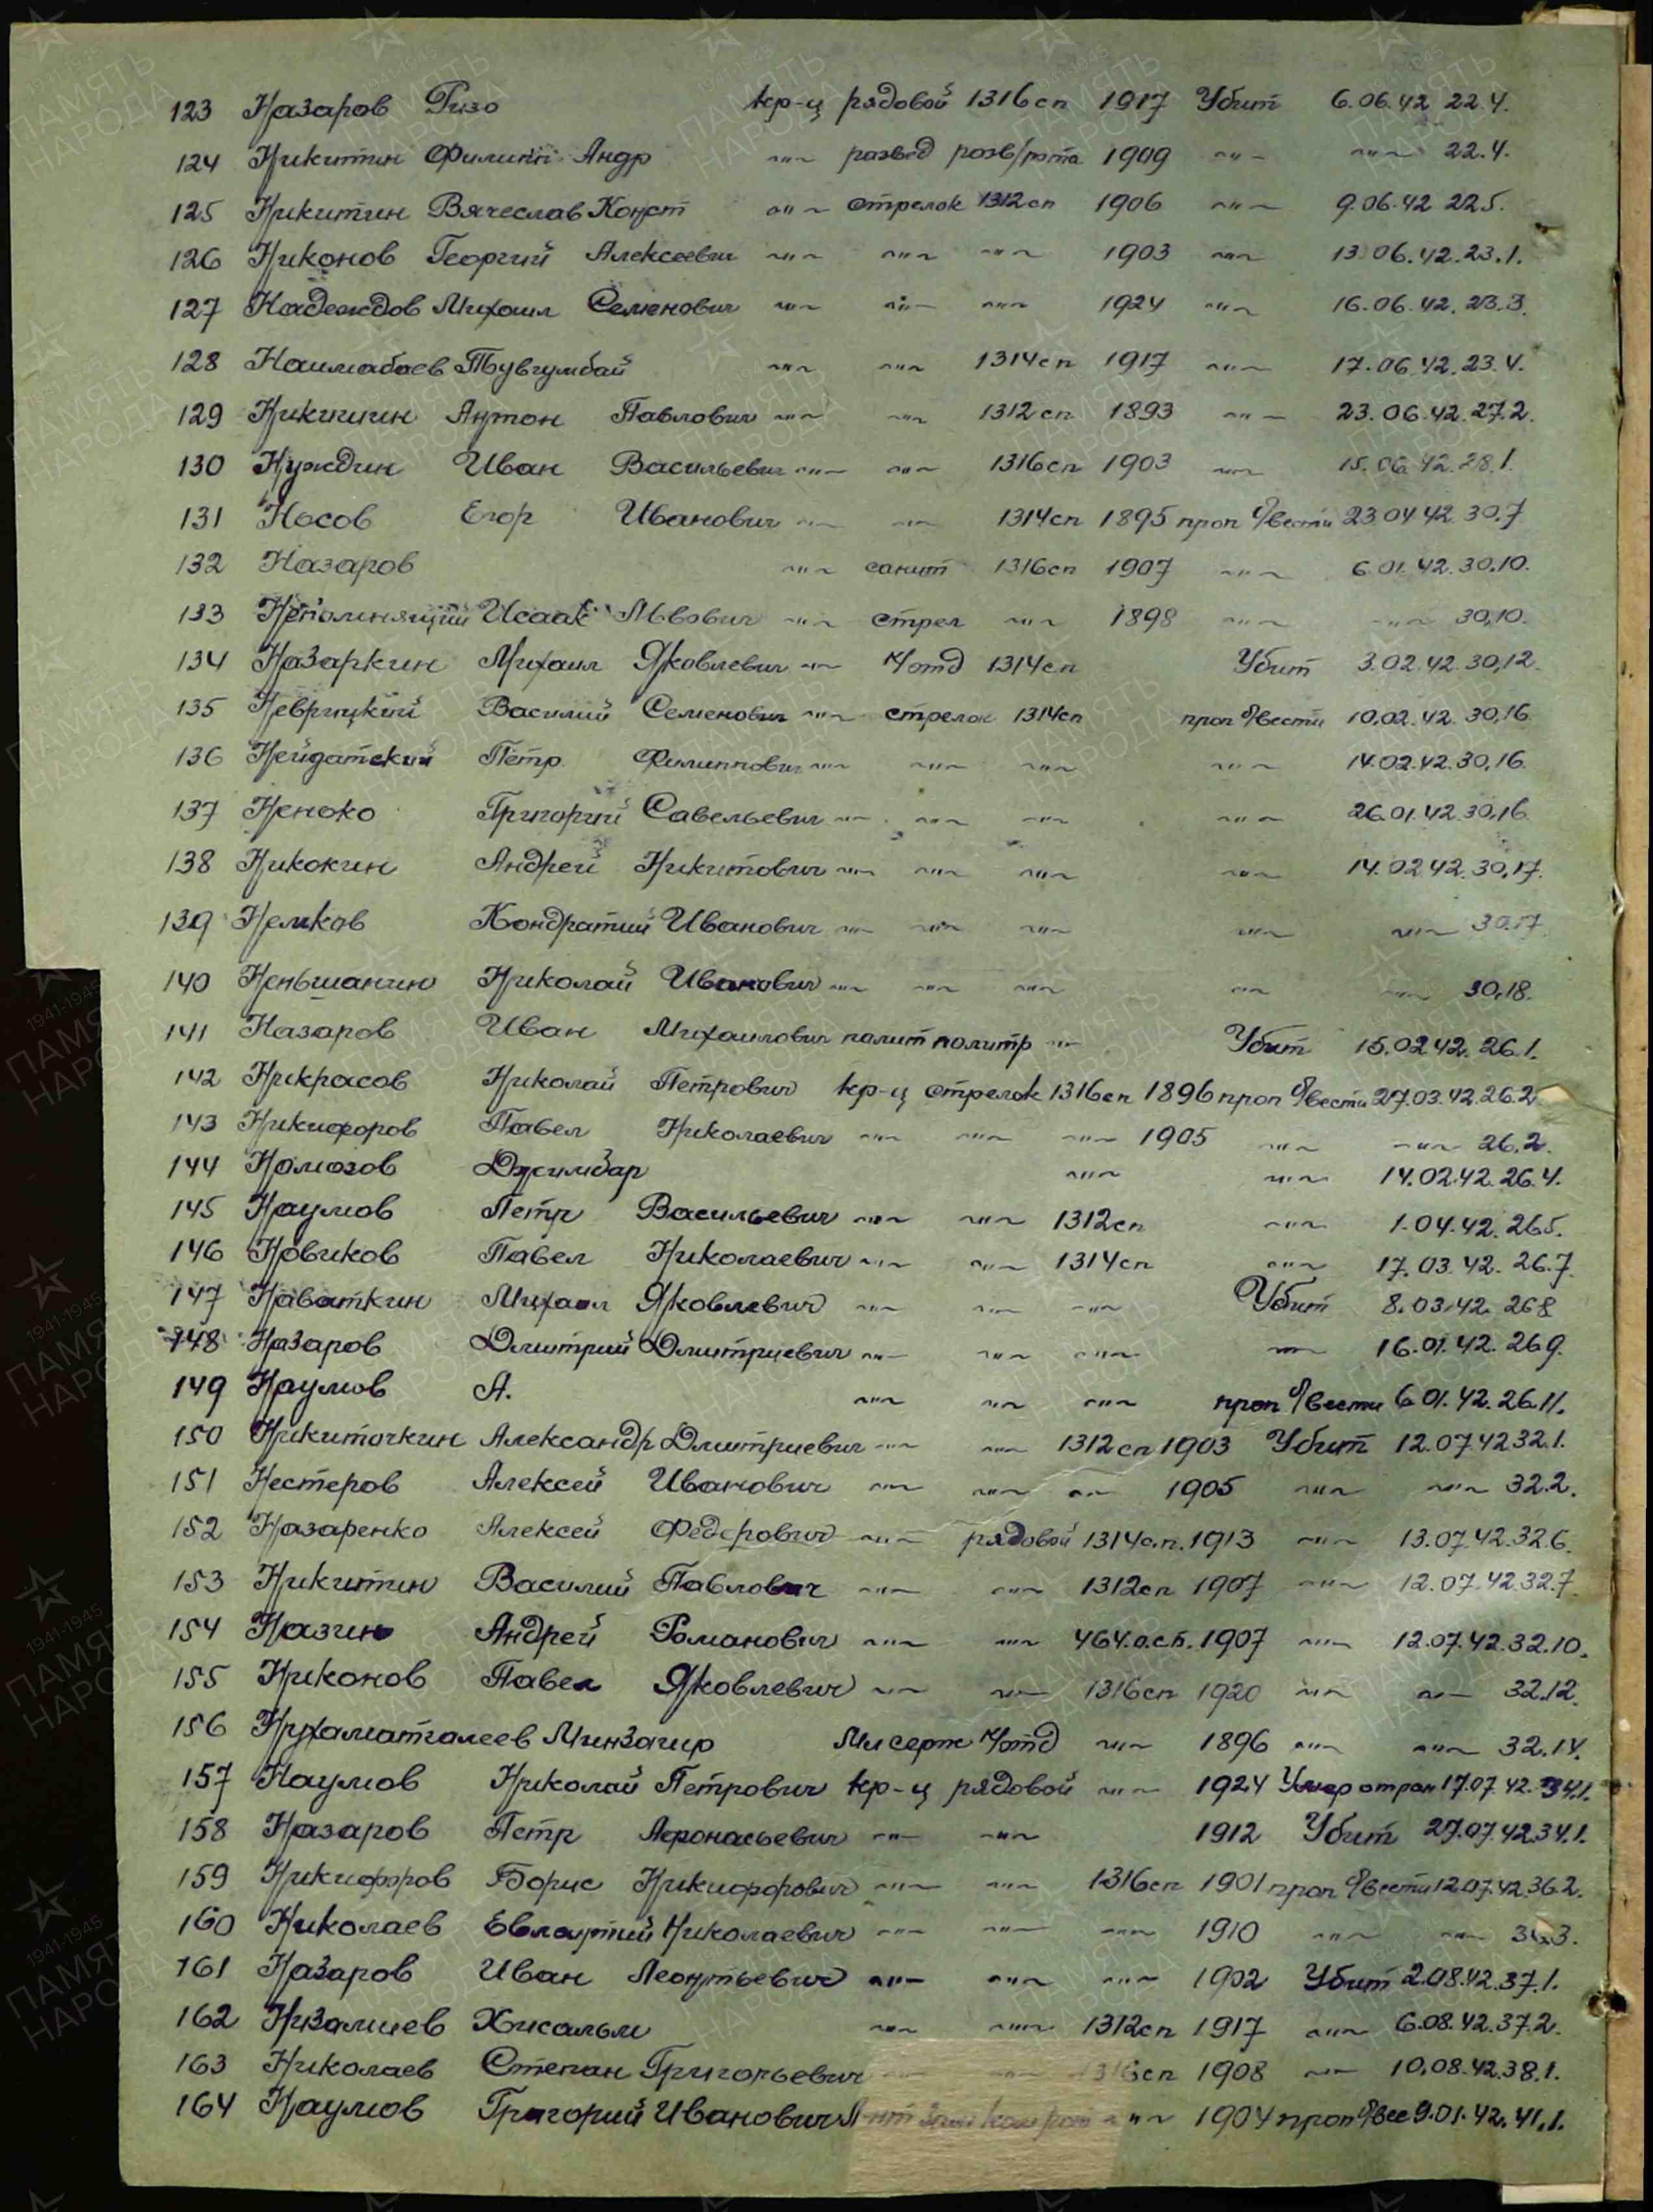 123 Назаров Гизо кр-ц рядовой 1316сп 1917 Убит 6.06.42 22.4.
124 Никитин Филипп Андр –"– развед розв/рота 1909 –"– –"– 22.4.
125 Никитин Вячеслав Конст –"– стрелок 1312сп 1906 –"– 9.06.42 22.5.
126 Никонов Георгий Алексеевич –"– –"– –"– 1903 –"– 13.06.42. 23.1.
127 Надеждов Михаил Семенович –"– –"– –"– 1924 –"– 16.06.42. 23.3.
128 Наимабаев Тувгумбай –"– –"– 1314сп 1917 –"– 17.06.42. 23.4.
129 Никишин Антон Павлович –"– –"– 1312сп 1893 –"– 23.06.42. 27.2.
130 Нуждин Иван Васильевич –"– –"– 1316сп 1903 –"– 15.06.42. 28.1.
131 Носов Егор Иванович –"– –"– 1314сп 1895 проп б/вести 23.04.42. 30.7
132 Назаров –"– санит 1316сп 1907 –"– 6.01.42. 30.10.
133 Непомнящий Исаак Львович –"– стрел –"– 1898 –"– –"– 30.10.
134 Назаркин Михаил Яковлевич –"– к/отд 1314сп Убит 3.02.42. 30.12.
135 Неврицкий Василий Семенович –"– стрелок 1314сп проп б/вести 10.02.42. 30.16
136 Нейдатский Петр Филиппович –"– –"– –"– –"– 14.02.42. 30.16.
137 Неноко Григорий Савельевич –"– –"– –"– –"– 26.01.42. 30.16.
138 Никокин Андрей Никитович –"– –"– –"– –"– 14.02.42. 30.17.
139 Немков Кондратий Иванович –"– –"– –"– –"– –"– 30.17
140 Неньшанин Николай Иванович –"– –"– –"– –"– –"– 30.18.
141 Назаров Иван Михайлович полит политр –"– Убит 15.02.42. 26.1.
142 Никрасов Николай Петрович кр-ц стрелок 1316сп 1896 проп б/вести 27.03.42. 26.2
143 Никифоров Павел Николаевич –"– –"– –"– 1905 –"– –"– 26.2.
144 Номозов Джимбар –"– –"– 14.02.42. 26.4.
145 Наумов Петр Васильевич –"– –"– 1312сп –"– 1.04.42. 26.5.
146 Новиков Павел Николаевич –"– –"– 1314сп –"– 17.03.42. 26.7.
147 Наваткин Михаил Яковлевич –"– –"– –"– Убит 8.03.42. 26.8
148 Назаров Дмитрий Дмитриевич –"– –"– –"– –"– 16.01.42. 26.9.
149 Наумов А. –"– –"– –"– проп б/вести 6.01.42. 26.11.
150 Никиточкин Александр Дмитриевич –"– –"– 1312сп 1903 Убит 12.07.42 32.1.
151 Нестеров Алексей Иванович –"– –"– –"– 1905 –"– –"– 32.2.
152 Назаренко Алексей Федерович –"– рядовой 1314с.п. 1913 –"– 13.07.42. 32.6.
153 Никитин Василий Павлович –"– –"– 1312сп 1907 –"– 12.07.42. 32.7.
154 Назин Андрей Романович –"– –"– 464.о.с.б. 1907 –"– 12.07.42. 32.10.
155 Никонов Павел Яковлевич –"– –"– 1316сп 1920 –"– –"– 32.12.
156 Нухаматгалеев Минзагир Мл серж к/отд –"– 1896 –"– –"– 32.14.
157 Наумов Николай Петрович кр-ц рядовой –"– 1924 Умер от ран 17.07.42. 34.1.
158 Назаров Петр Афонасьевич –"– –"– 1912 Убит 27.07.42. 34.1.
159 Никифоров Борис Никифорович –"– –"– 1316сп 1901 проп б/вести 12.07.42. 36.2.
160 Николаев Евлаутий Николаевич –"– –"– –"– 1910 –"– –"–
161 Назаров Иван Леонтьевич –"– –"– –"– 1902 Убит 2.08.42. 37.1.
162 Низамиев Хисальм –"– –"– 1312сп 1917 –"– 6.08.42. 37.2.
163 Николаев Степан Григорьевич –"– –"– 1316сп 1908 –"– 10.08.42. 38.1.
164 Наумов Григорий Иванович –"– 1904 проп б/вес 9.01.42. 41.1.